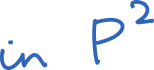 in P²